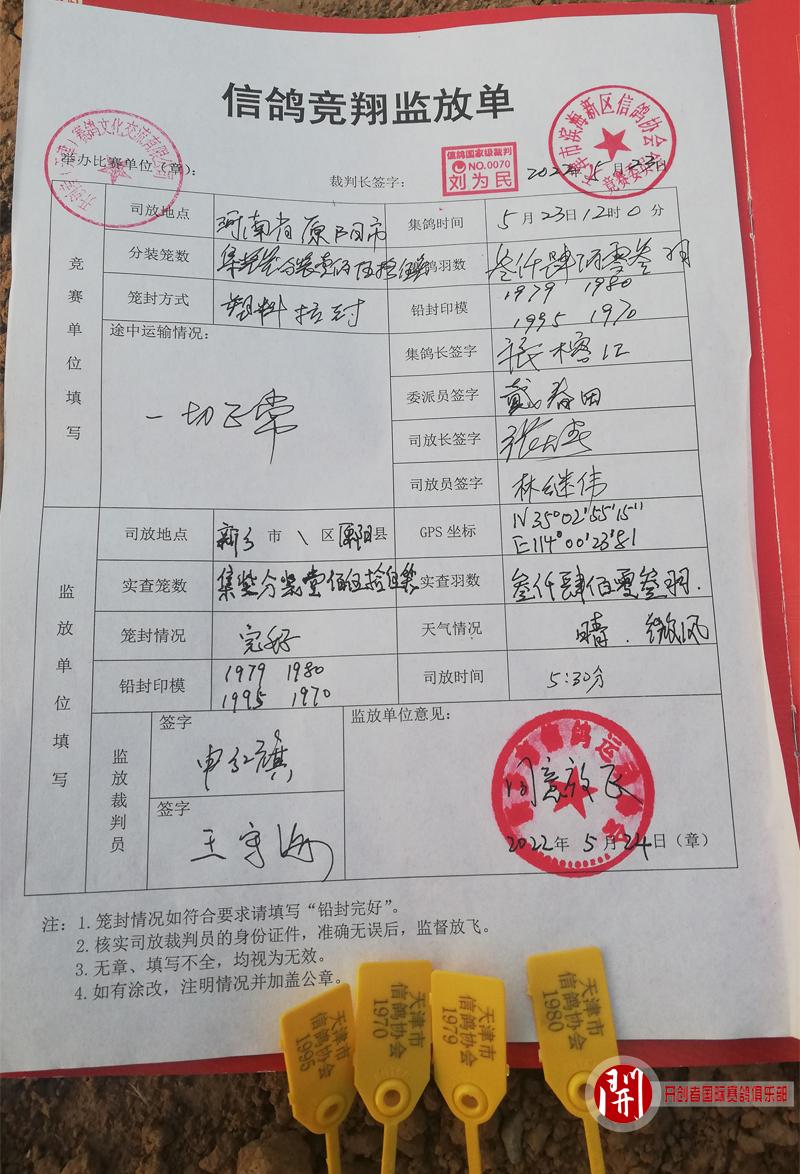 信鸽竞翔监放单
举办比赛单位（章）：
裁判长签字：
信鸽国家级裁判
NO.0070
刘为民
2022年5月23日
竞赛单位填写
司放地点 河南省原阳市 集鸽时间 5月23日12时0分
分装笼数 鸽羽数 叁仟肆佰零叁羽
笼封方式 塑料扎封 铅封印模 1979 1980
1995 1970
途中运输情况：
一切正常
集鸽长签字
委派员签字 戴春田
司放长签字
司放员签字 林继伟
监放单位填写
司放地点 新乡市\区原阳县 GPS 坐标 N35°02'55'15"
E114°00'23'81
实查笼数 实查羽数 叁仟肆佰零叁羽.
笼封情况 完好 天气情况 晴.微风
铅封印模 1979 1980
1995 1970
司放时间 5:30分
监放裁判员
签字
申红旗
签字
王守海
监放单位意见：
同意放飞
2022年5月24日（章）
注：1. 笼封情况如符合要求请填写“铅封完好”。
2. 核实司放裁判员的身份证件，准确无误后，监督放飞。
3. 无章、填写不全，均视为无效。
4. 如有涂改，注明情况并加盖公章。
天津市
信鸽协会
1995
天津市
信鸽协会
1970
天津市
信鸽协会
1979
天津市
信鸽协会
1980
开创者国际赛鸽俱乐部